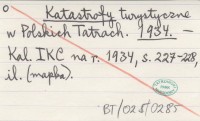 o Katastrofy turystyczne
w Polskich Tatrach. 1934. –
Kal. IKC na r. 1934, s. 227-228,
il. (mapka).
BT/028/0285